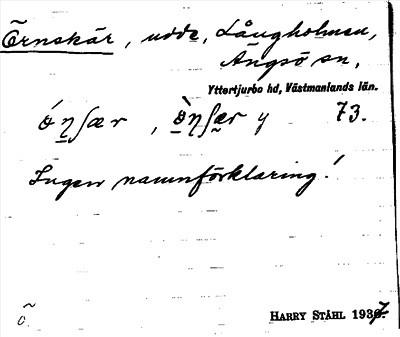 Örnskär, udde, Långholmen,
Ängsö sn,
Yttertjurbo hd, Västmanlands län.
ó̱ŋʃær, ò̱ŋʃær y 73.
Ingen namnförklaring!
õ. HARRY STÅHL 1937.